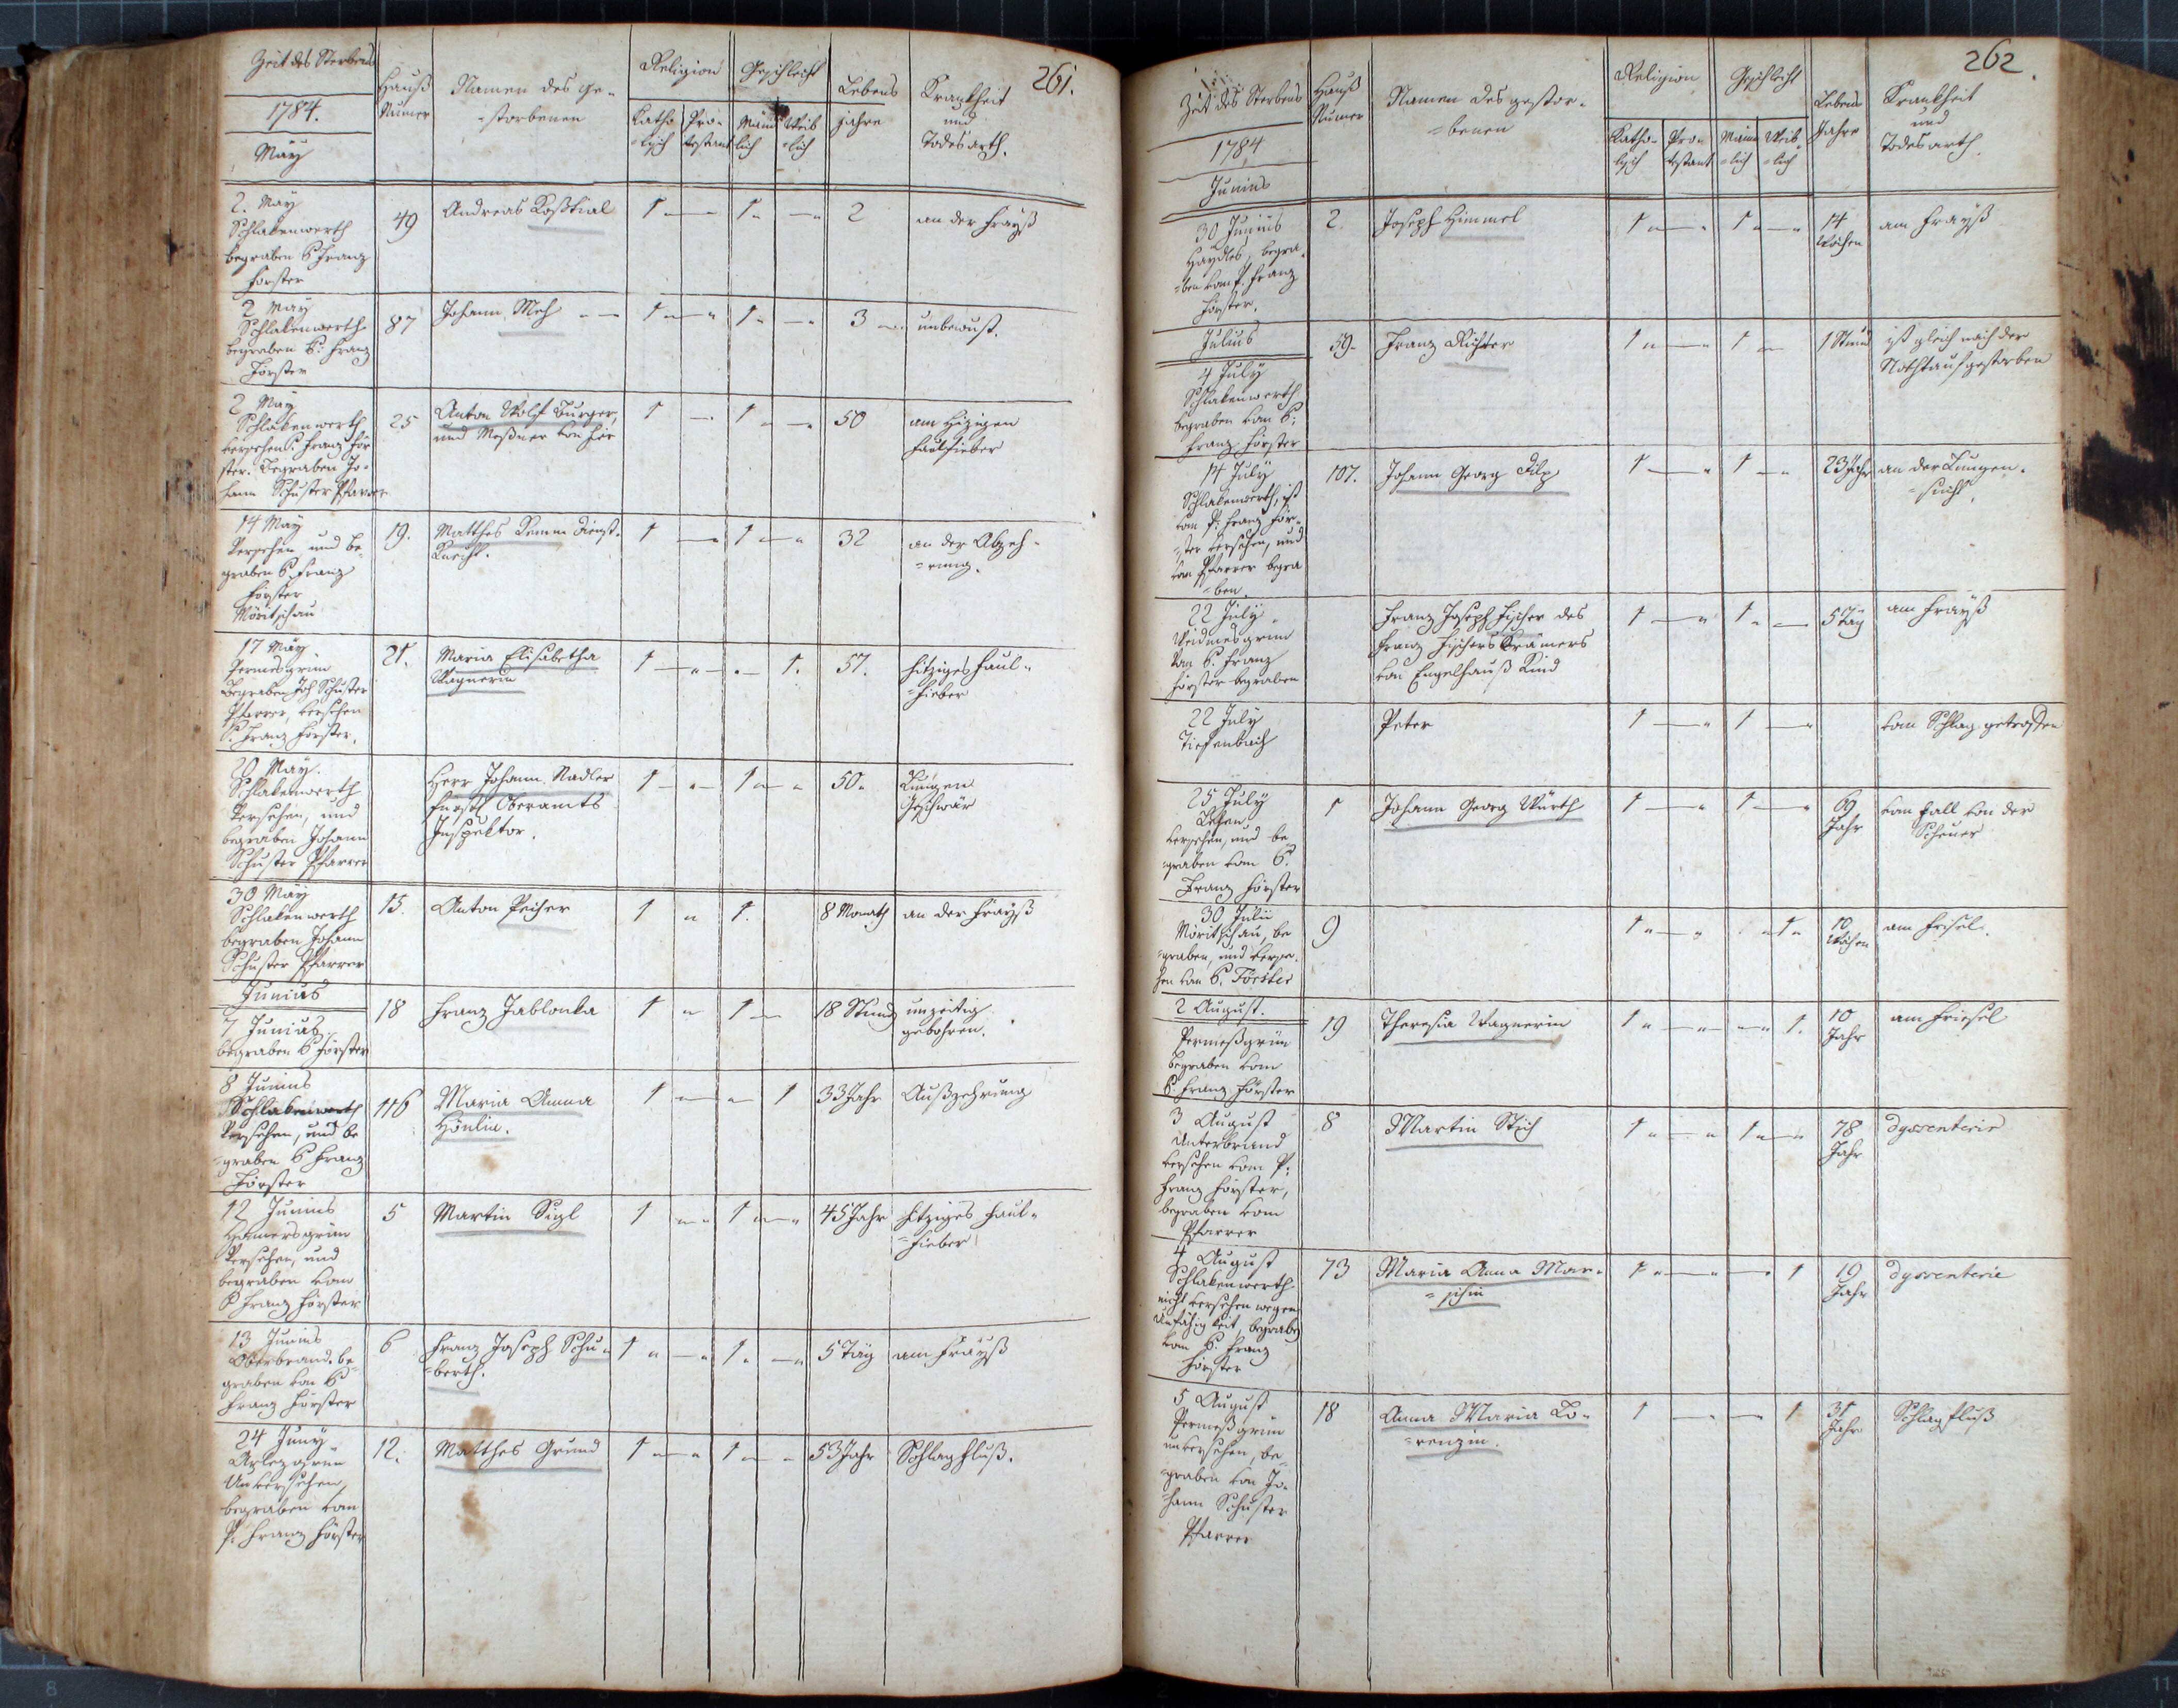 261.
Zeit des Sterbens
1784.
May
Hauß
Numer
Namen des ge-
=storbenen
Religion
Katho
=lisch
Pro-
testant
Geschlecht
Mäñ
lich
Weib
=lich
Lebens
jahre
Krankheit
und
Todesarth.
2. May
Schlakenwerth
begraben P Franz
Förster
49
Andreas Kosstial
1
1
2
an der Frayß
2 May
Schlakenwerth
begraben P: Franz
Förster
87
Johann Meh
1
1
3
unbewust.
2 May
Schlakenwerth
versehen P. Franz För
ster. Begraben Jo=
hann Schuster Pfarrer
25
Anton Wolf Burger,
und Meßner von hir
1
1
50
am hizigen
Faulfieber
14 May
Versehen und be
graben P. Franz
Förster
Möritschau
19.
Matthes Demm Dienst=
Knecht.
1
1
32
an der Abzeh=
=rung.
17 May
Permesgrün
Begraben Joh Schuster
Pfarrer, versehen
P. Franz Förster.
21.
Maria Elisabetha
Wagnerin
1
1.
57.
hitziges Faul=
=Fieber
20 May.
Schlakenwerth
Versehen, und
begraben Johann
Schuster Pfarrer
Herr Johann Nadler
fürstl Oberamts
Inspektor.
1
1
50.
Lungen
Geschwär
30 May
Schlakenwerth
begraben Johann
Schuster Pfarrer
15.
Anton Peicher
1
1.
8 Monath
an der Frayß
Junius
7 Junius
begraben P Förster
18
Franz Jablonka
1
1
18 Stund
unzeitig
gebohren.
8 Junius
Schlakenwerth
Versehen, und be
=graben P Franz
Förster
116
Maria Anna
Hönlin.
1
1
33 Jahr
Außzehrung
12 Junius
Haumersgrün
Versehen, und
begraben von
P Franz Förster
5
Martin Sigl
1
1
45 Jahr
hitziges Faul=
=Fieber
13 Junius
Oberbrand be
graben von P
Franz Förster
6
Franz Joseph Schu=
=berth.
1
1
5 Täg
am Frayß
24 Juny
Arlezgrün
Unversehen,
begraben von
P. Franz Förster
12.
Matthes Grund
1
1
53 Jahr
Schlagfluß.
262.
Zeit des Sterbens
1784
Junius
Hauß
Numer
Namen des gestor=
=benen
Religion
Katho=
lisch
Pro=
testant
Geschlecht
Mäñ
=lich
Weib
lich
Lebens
Jahre
Krankheit
und
Todesarth.
30 Junius
Haydles, begra=
=ben vom P. Franz
Förster.
2
Joseph Himmel
1
1
14
Wochen
am Frayß
Julius
4 July
Schlakenwerth
begraben vom P:
Franz Förster
59.
Franz Richter
1
1
1 Stund
ist gleich nach der
Nothtauf gestorben
14 July
Schlakenwerth, ist
vom P: Franz För=
=ster versehen, und
vom Pfarrer begra
=ben.
107.
Johann Georg Dilp
1
1
23 Jahr
an der Lungen=
=sucht
22 July
Weidmesgrün
Von P. Franz
Förster begraben
Franz Joseph Fischer des
Franz Fischers Krämers
von Engelhauß Kind
1
1
5 Täg
am Frayß
22 July
Tiefenbach
Peter
1
1
vom Schlag getroffen
25 July
versehen, und be
=graben vom P.
Franz Förster
1
Johann Georg Würth
1
1
69
Jahr
vom Fall von der
Scheuer
30 Julii
Möritschau, be
=graben, und verse=
hen vom P. Förster
9
1
1
10
Wochen
am Frisel.
2 August.
Permeßgrün
Begraben vom
P. Franz Förster
19
Theresia Wagnerin
1
1.
10
Jahr
am Friesel
3 August
Unterbrand
versehen vom P:
Franz Förster,
begraben vom
Pfarrer
8
Martin Stich
1
1
78
Jahr
dyssenterie
4 August
Schlakenwerth
nicht versehen wegen
Unfähigkeit, begraben
vom P. Franz
Förster
73
Maria Anna Mar=
=schin
1
1
19
Jahr
dyssenterie
5 August
Permeßgrün
unversehen, be
=graben von Jo=
=hann Schuster
Pfarrer
18
Anna Maria Lo=
=renzin.
1
1
31
Jahr
Schlagfluß